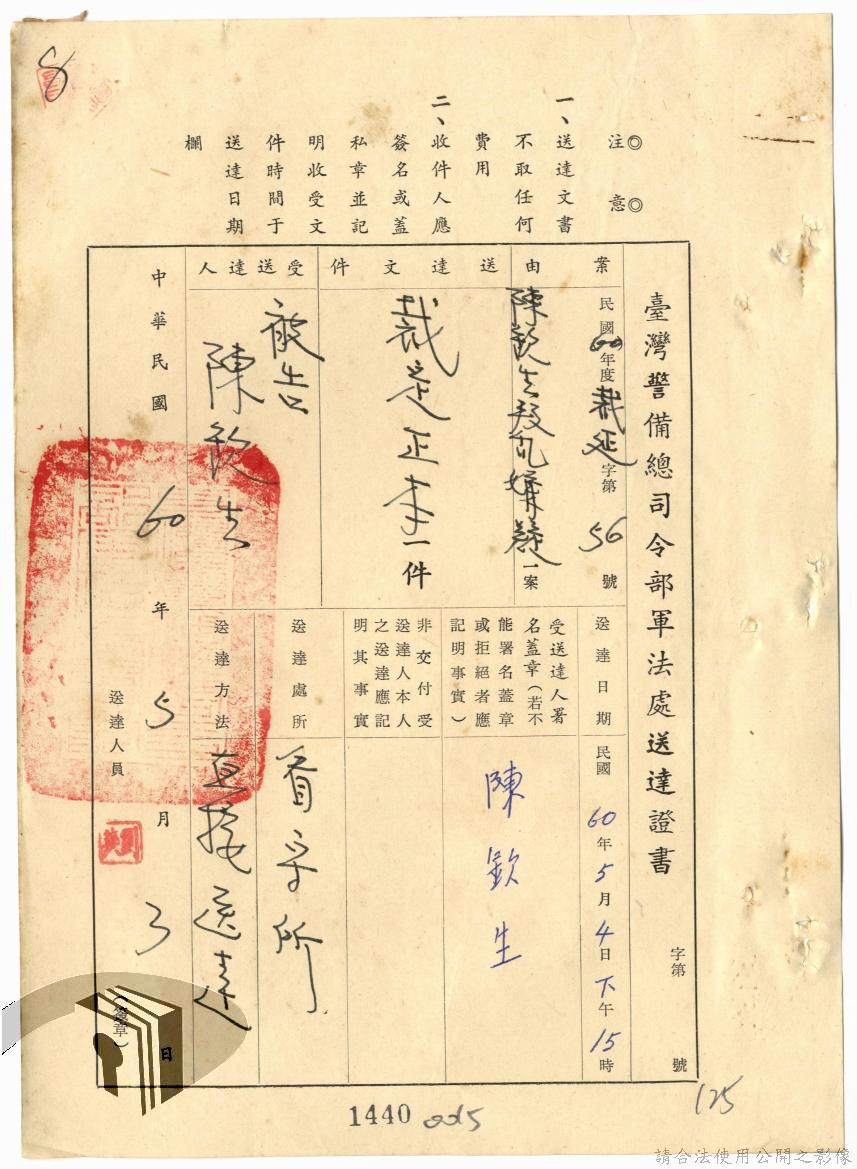 ◎注意◎
一、送達文書
不取任何
費用
二、收件人應
簽名或蓋
私章並記
明收受文
件時間于
送達日期
欄
臺灣警備總司令部軍法處送達證書
字第 號
案由
民國60年度裁延字第56號
陳欽生叛亂嫌疑一案
送達文件
裁定正本一件
受送達人
被告
陳欽生
送達日期
民國60年5月4日下午15時
受送達人署
名蓋章(若不
能署名蓋章
或拒絕者應
記明事實)
陳欽生
非交付受
送達人本人
之送達應記
明其事實
送達處所
看守所
送達方法
直接送達
中華民國60年5月3日
送達人員
(簽章)
1440
125
請合法使用公開之影像